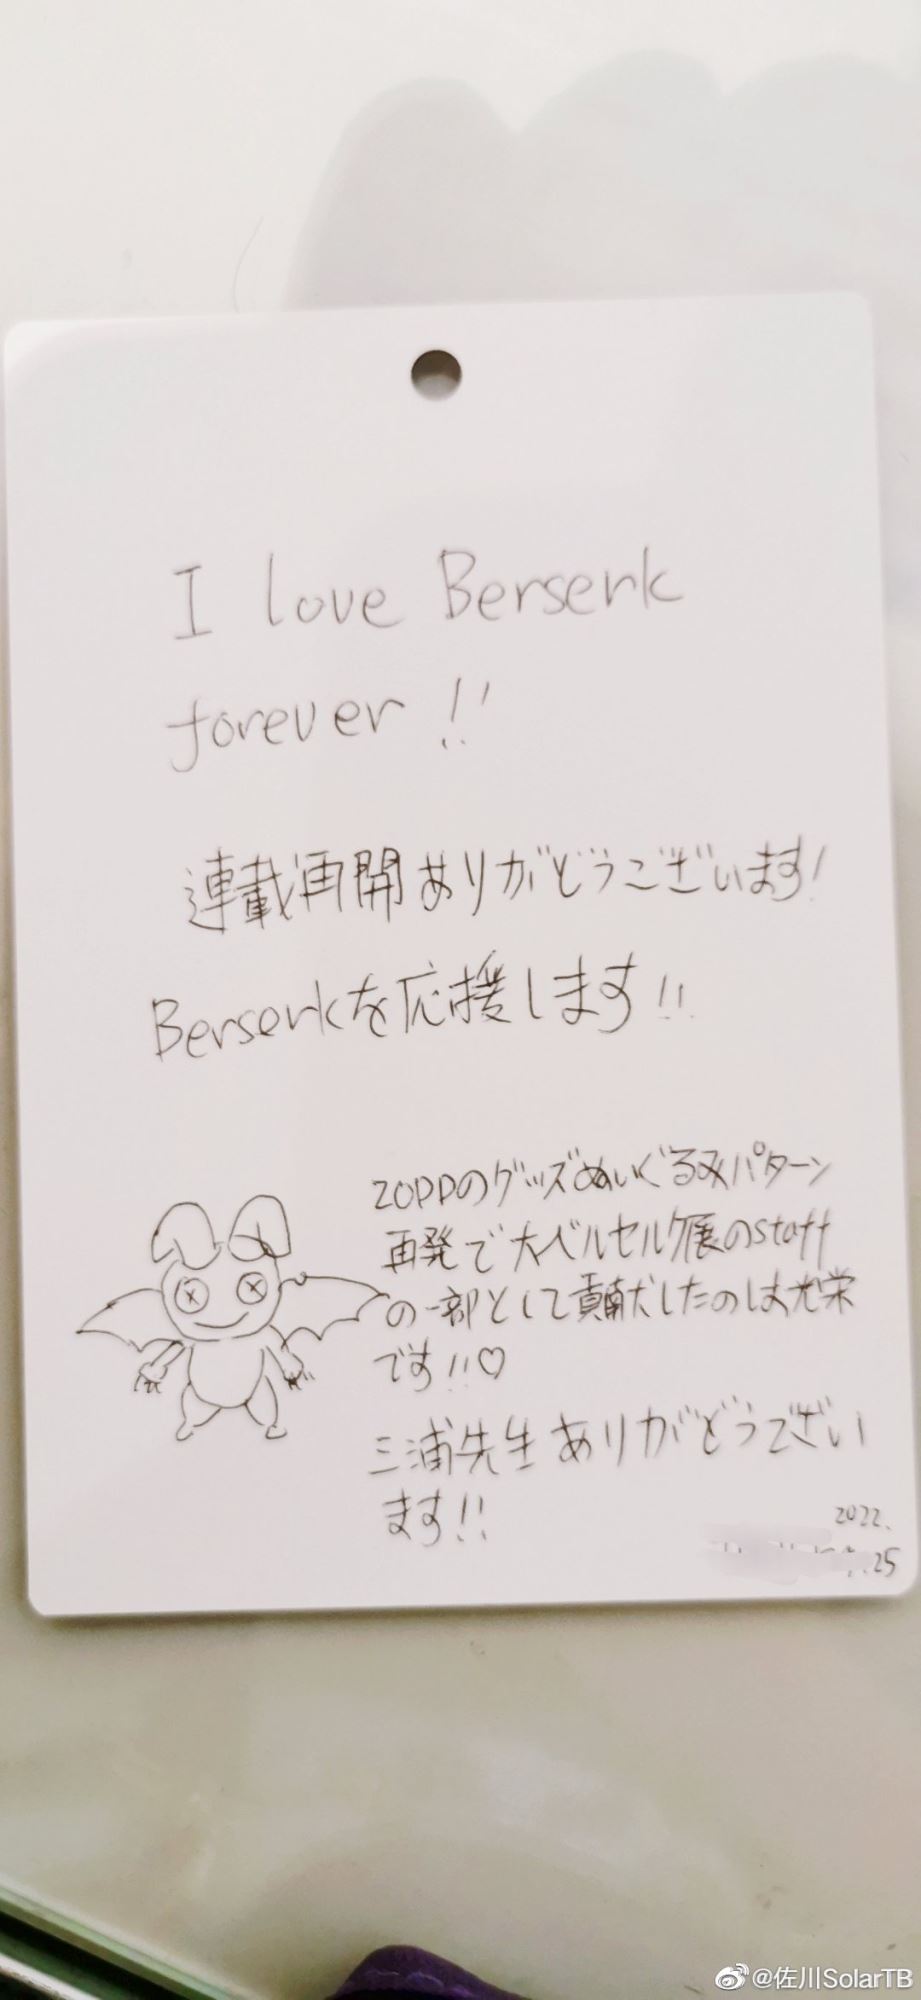 I love Berserk
forever !!
連載再開ありがどうございます!
Berserkを応援します!!
ZODDのグッズぬいぐるみパターン
再発で大ベルセルク展のstaff
の一部として貢献したのは光栄
です!!♡
三浦先生ありがどうござい
ます!!
2022.
25
@佐川SolarTB